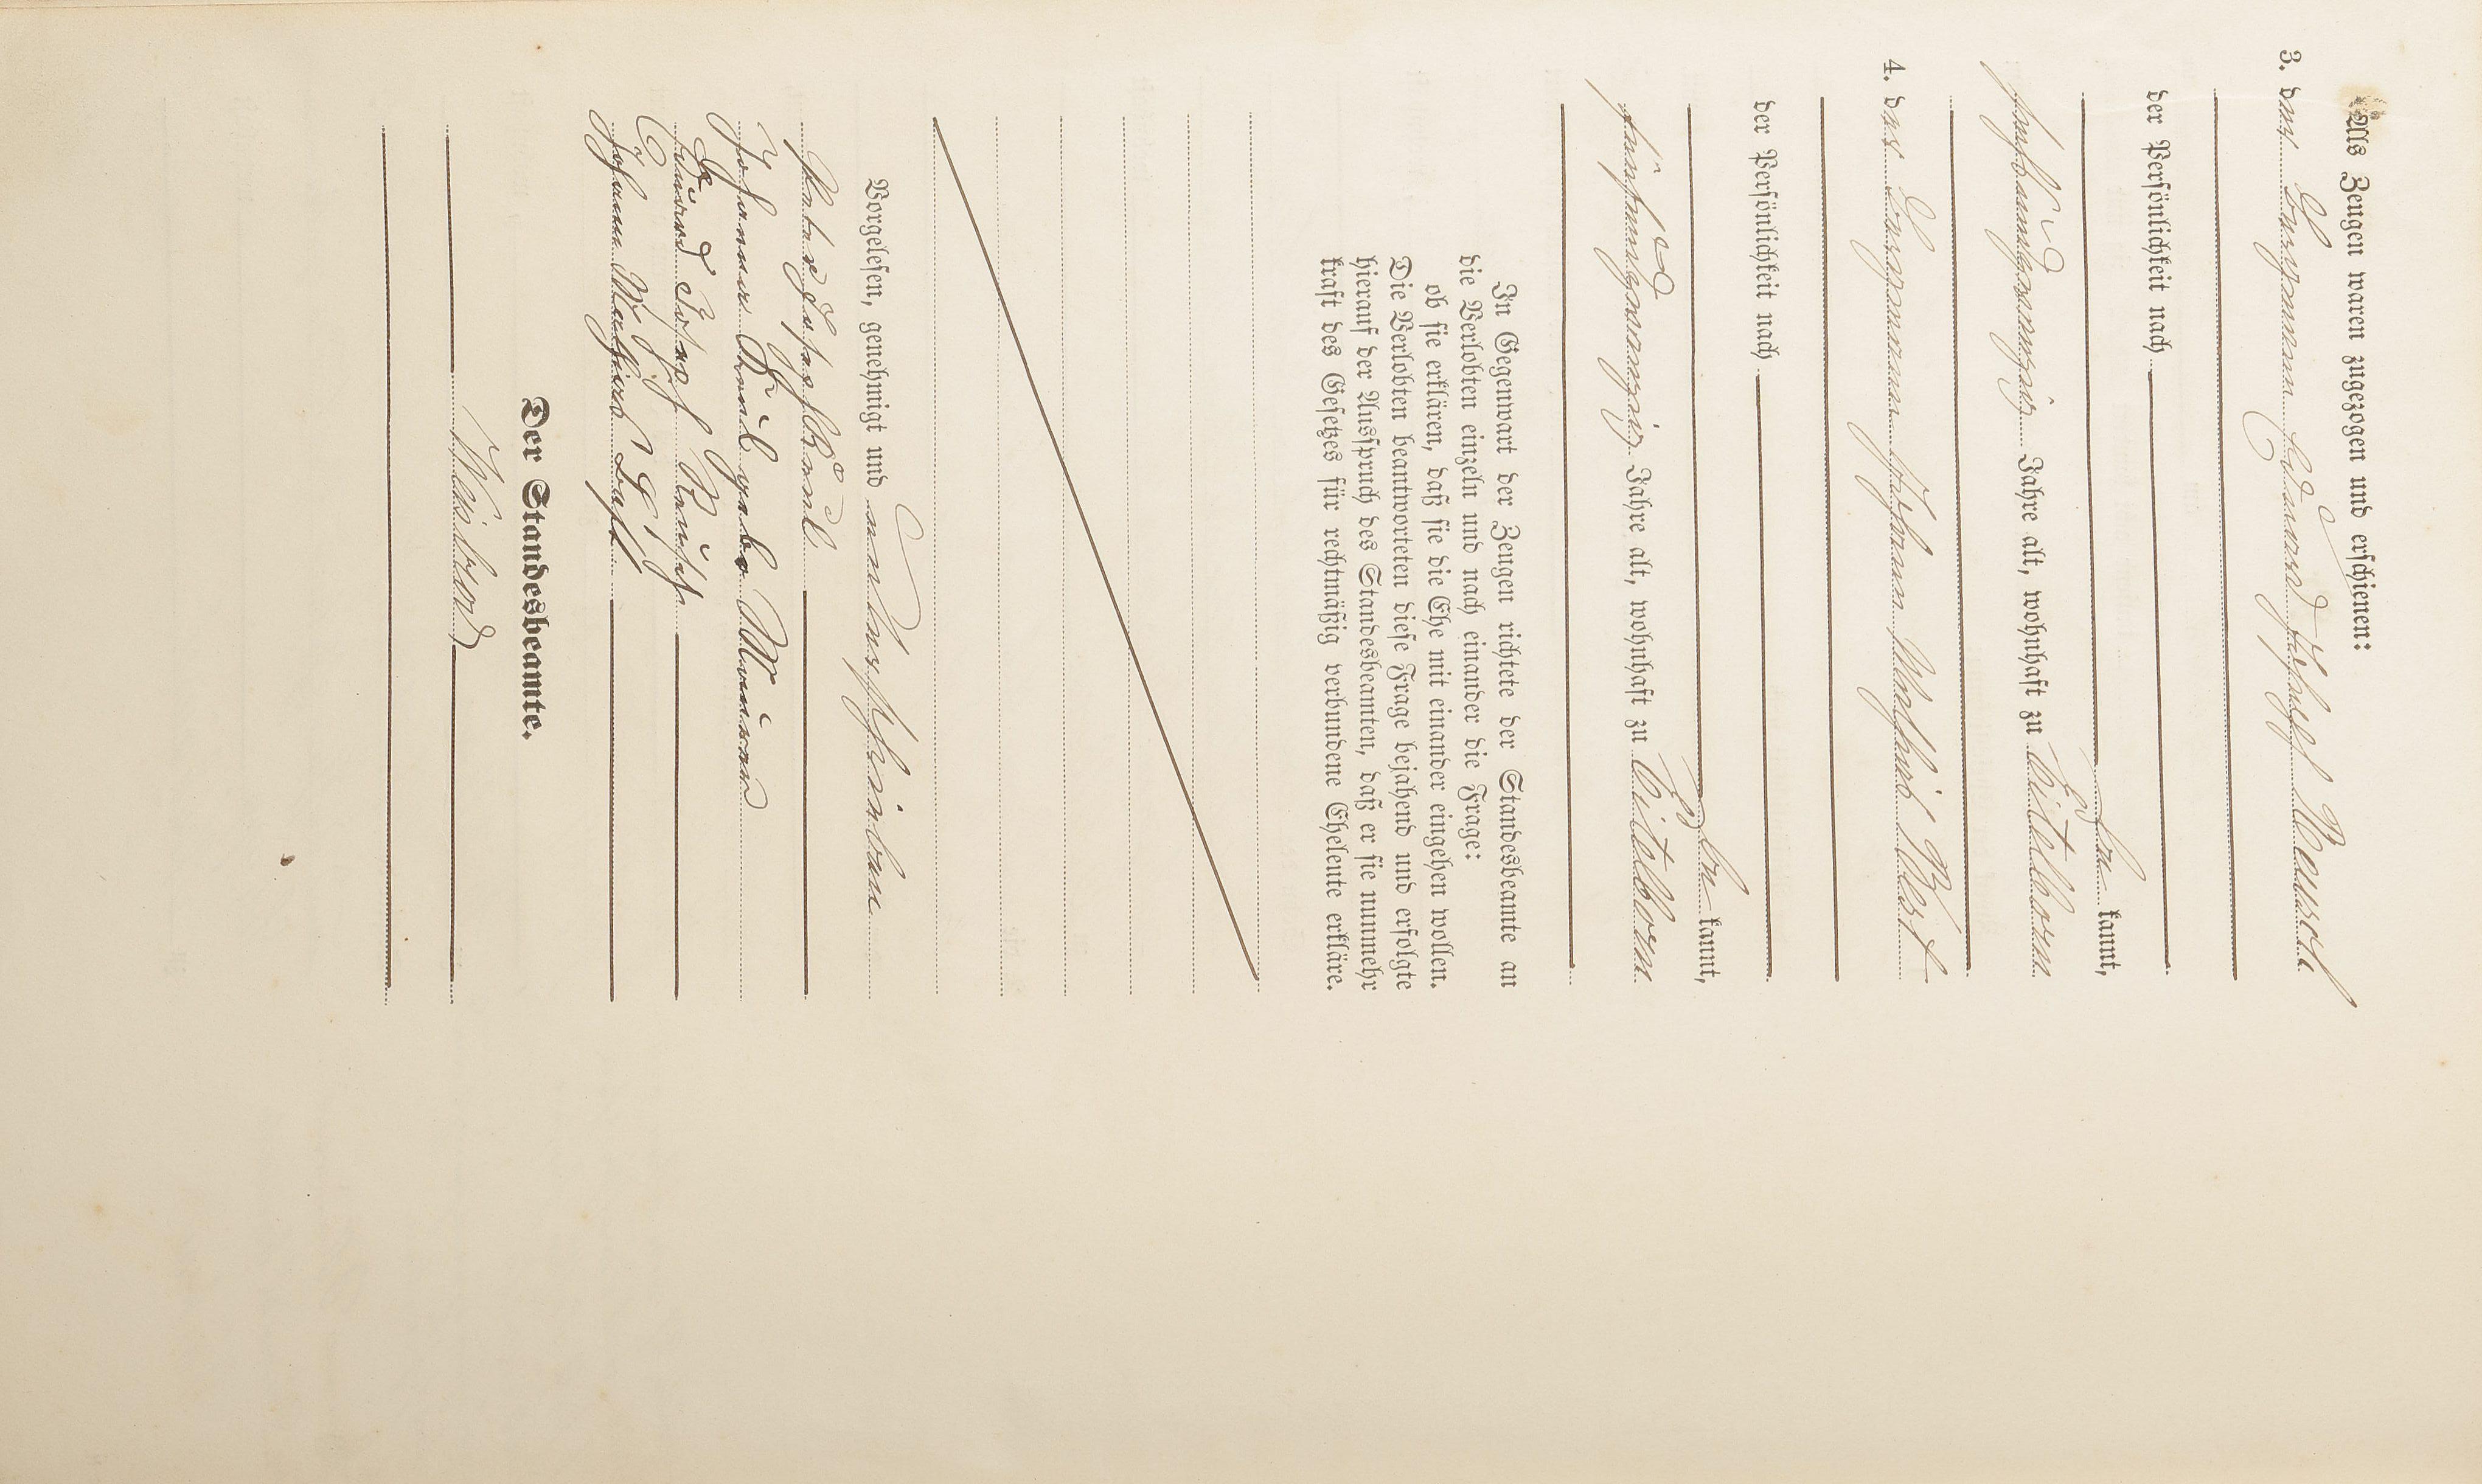 Als Zeugen waren zugezogen und erschienen:
3. der Bergmann Eduard Josef
der Persönlichkeit nach
kannt,
Jahre alt, wohnhaft zu Eitelborn
4. der Bergmann Johann Mathias
der Persönlichkeit nach
kannt,
fünfundzwanzig Jahre alt, wohnhaft zu Eitelborn
In Gegenwart der Zeugen richtete der Standesbeamte an
die Verlobten einzeln und nach einander die Frage:
ob sie erklären, daß sie die Ehe mit einander eingehen wollen.
Die Verlobten beantworteten diese Frage bejahend und erfolgte
hierauf der Ausspruch des Standesbeamten, daß er sie nunmehr
kraft des Gesetzes für rechtmäßig verbundene Eheleute erkläre.
Vorgelesen, genehmigt und unterschrieben
Peter Josef
Johanna
Eduard Josef
Johann Mathias
Der Standesbeamte.